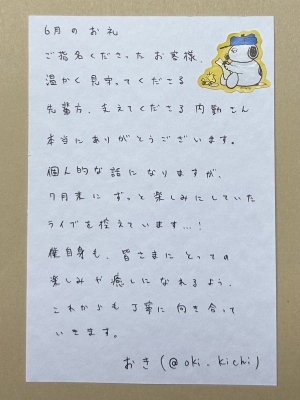 6月のお礼
ご指名くださったお客様、
温かく見守ってくださる
先輩方、支えてくださる内勤さん
本当にありがとうございます。
個人的な話になりますが、
7月末にずっと楽しみにしていた
ライブを控えています…!
僕自身も、皆さまにとっての
楽しみや癒しになれるよう、
これからも丁寧に向き合って
いきます。
おき(@oki.kichi)